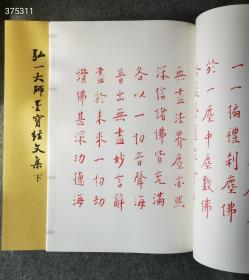 375311
弘一大師墨寶經文集 下
一一徧禮刹塵佛
於一塵中塵數佛
無盡法界塵亦然
深信諸佛皆充滿
各以一切音聲海
普出無盡妙言辭
盡於未來一切劫
讚佛甚深功德海